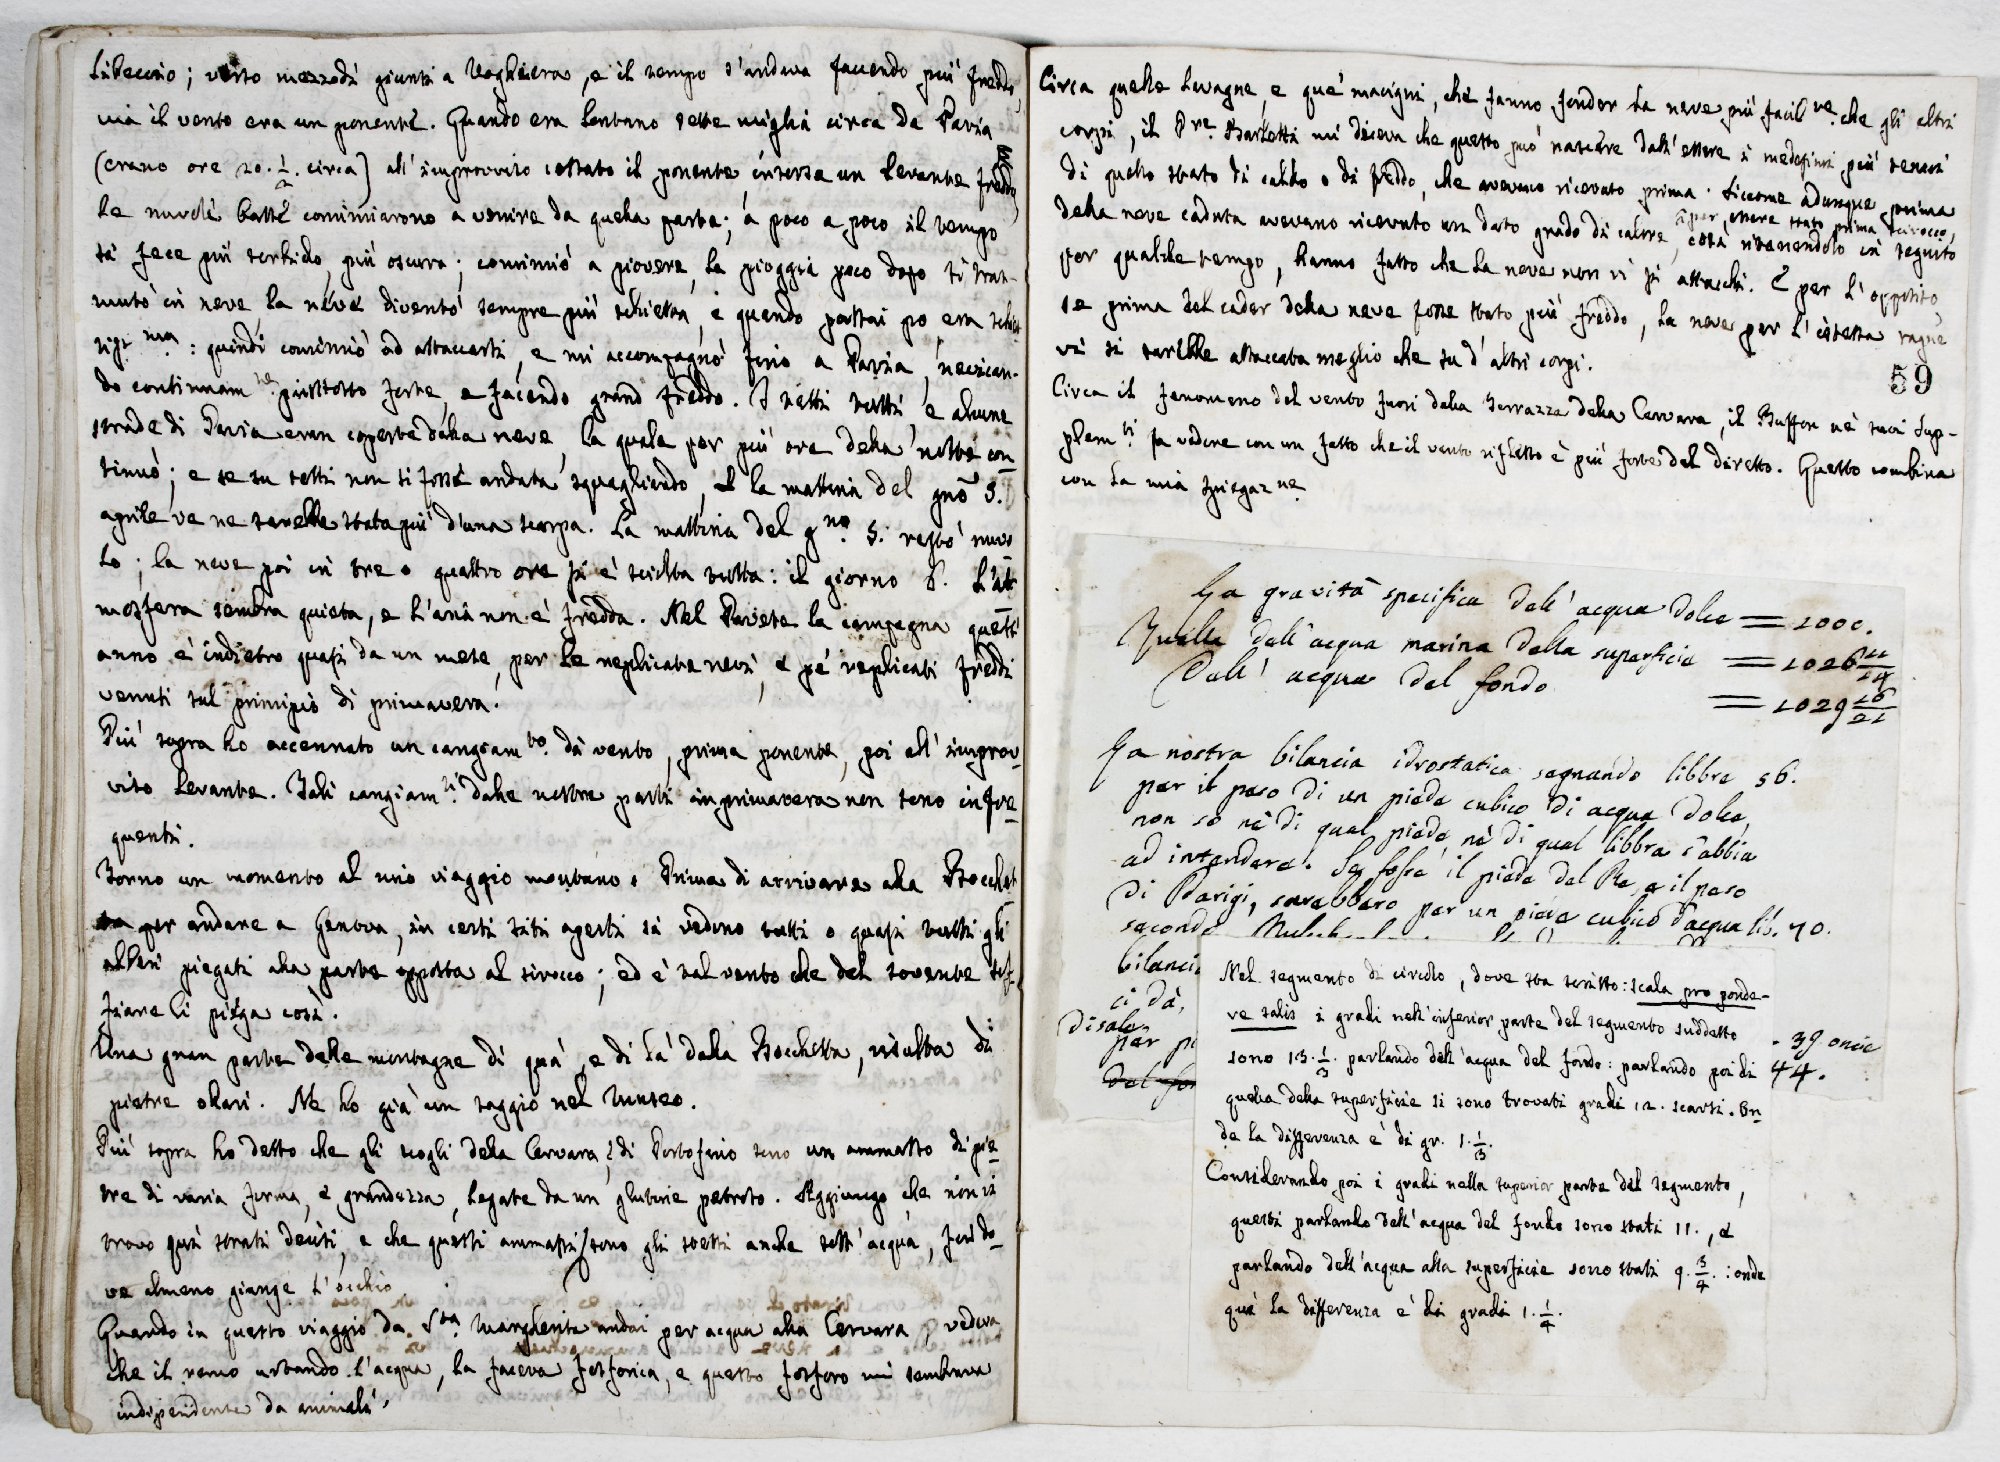 Libeccio; verso mezzodì giunsi a Voghiera, e il tempo s'andava facendo più freddo,
ma il vento era un ponente. Quando era lontano sette miglia circa da Pavia
(erano ore 20. 1/2. circa) all'improvviso cessato il ponente, insorse un Levante freddo,
le nuvole basse cominciarono a venire da quella parte; a poco a poco il tempo
si fece più torbido, più oscuro; cominciò a piovere, la pioggia poco dopo si tras-
mutò in neve, la neve diventò sempre più schietta, e quando passai po era
: quindi cominciò ad attaccarsi, e mi accompagnò fino a Pavia, nevican-
do continuam te. piuttosto forte, e facendo grand freddo. I tetti tutti, e alcune
strade di Pavia eran coperte dalla neve, la quale per più ore della notte con-
tinuò; e se su tetti non si fosse andata squagliando, la mattina del gno 5.
aprile ve ne sarebbe stata più d'una scarpa. La mattina del gno. 5. restò nuvo
lo; la neve poi in tre o quattro ore si è sciolta tutta: il giorno 6. L'at
mosfera sembra quieta, e l'aria non è fredda. Nel Pavese la campagna quest'
anno è indietro quasi da un mese, per le replicate nevi, e pe' replicati freddi
venuti sul principio di primavera.
Più sopra ho accennato un cangiam to. di vento, prima ponente, poi all'improv-
viso Levante. Tali cangiam ti. dalle nostre parti in primavera non sono infre-
quenti.
Torno un momento al mio viaggio montano. Prima di arrivare alla Bocchet
ta per andare a Genova, in certi siti aperti si vedono tutti o quasi tutti gli
alberi piegati alla parte opposta al sirocco; ed è tal vento che del sovente sof-
fiare li piega così.
Una gran parte delle montagne di quà, e di là dalla Bocchetta, risulta di
pietre ollari. Ne ho già un saggio nel Museo.
Più sopra ho detto che gli scogli della Cervara, e di Portofino sono un ammasso di pie-
tre di varia forma, e grandezza, legate da un glutine petroso. Aggiungo, che non vi
trovo quì strati decisi, e che questi ammassi sono gli stessi anche sott'acqua, fin do-
ve almeno giunge l'occhio.
Quando in questo viaggio da Sta. Margherita andai per acqua alla Cervara, vedeva
che il remo urtando l'acqua, la faceva fosforica, e questo fosforo mi sembrava
indipendente da animali.
Circa quelle lavagne, e que' macigni, che fanno fonder la neve più facil te. che gli altri
corpi, il Pre. Barletti mi diceva che questo può nascere dall'essere i medesimi più tenaci
di quello stato di caldo o di freddo, che avevano ricevuto prima. Siccome adunque prima
per essere stato prima scirocco,
della neve caduta avevano ricevuto un dato grado di calore, così ritenendolo in seguito
per qualche tempo, hanno fatto che la neve non vi si attacchi. E per l'opposito,
se prima del cader della neve fosse stato più freddo, la neve per l'istessa ragne
vi si sarebbe attaccata meglio che su d'altri corpi.
59
Circa il fenomeno del vento fuori della Terrazza della Cervara, il Buffon nè suoi sup-
plem ti. fa vedere con un fatto che il vento riflesso è più forte del diretto. Questo combina
con la mia spiegaz ne.
La gravità specifica dell'acqua dolce = 1000.
Quella dell'acqua marina della superficie = 1026 11/14
Dell'acqua del fondo = 1029 16/21
La nostra bilancia idrostatica segnando libbre 56.
per il peso di un piede cubico di acqua dolce,
non so nè di qual piede, nè di qual libbra s'abbia
ad intendere. Se fosse il piede del Re, e il peso
di Parigi, sarebbero per un piede cubico d'acqua lib. 70.
secondo
bilancia
ci dà,
Disalo-
per - 39 oncie
44.
Nel segmento di circolo, dove sta scritto: scala pro ponde-
re salis i gradi nell'inferior parte del segmento suddetto
sono 13. 1/3. parlando dell'acqua del fondo: parlando poi di
quella della superficie si sono trovati gradi 12. scarsi. On-
de la differenza è di gr. 1. 1/3.
Considerando poi i gradi nella superior parte del segmento,
questi parlando dell'acqua del fondo sono stati 11., e
parlando dell'acqua alla superficie sono stati 9. 3/4. : onde
quì la differenza è di gradi 1. 1/4.